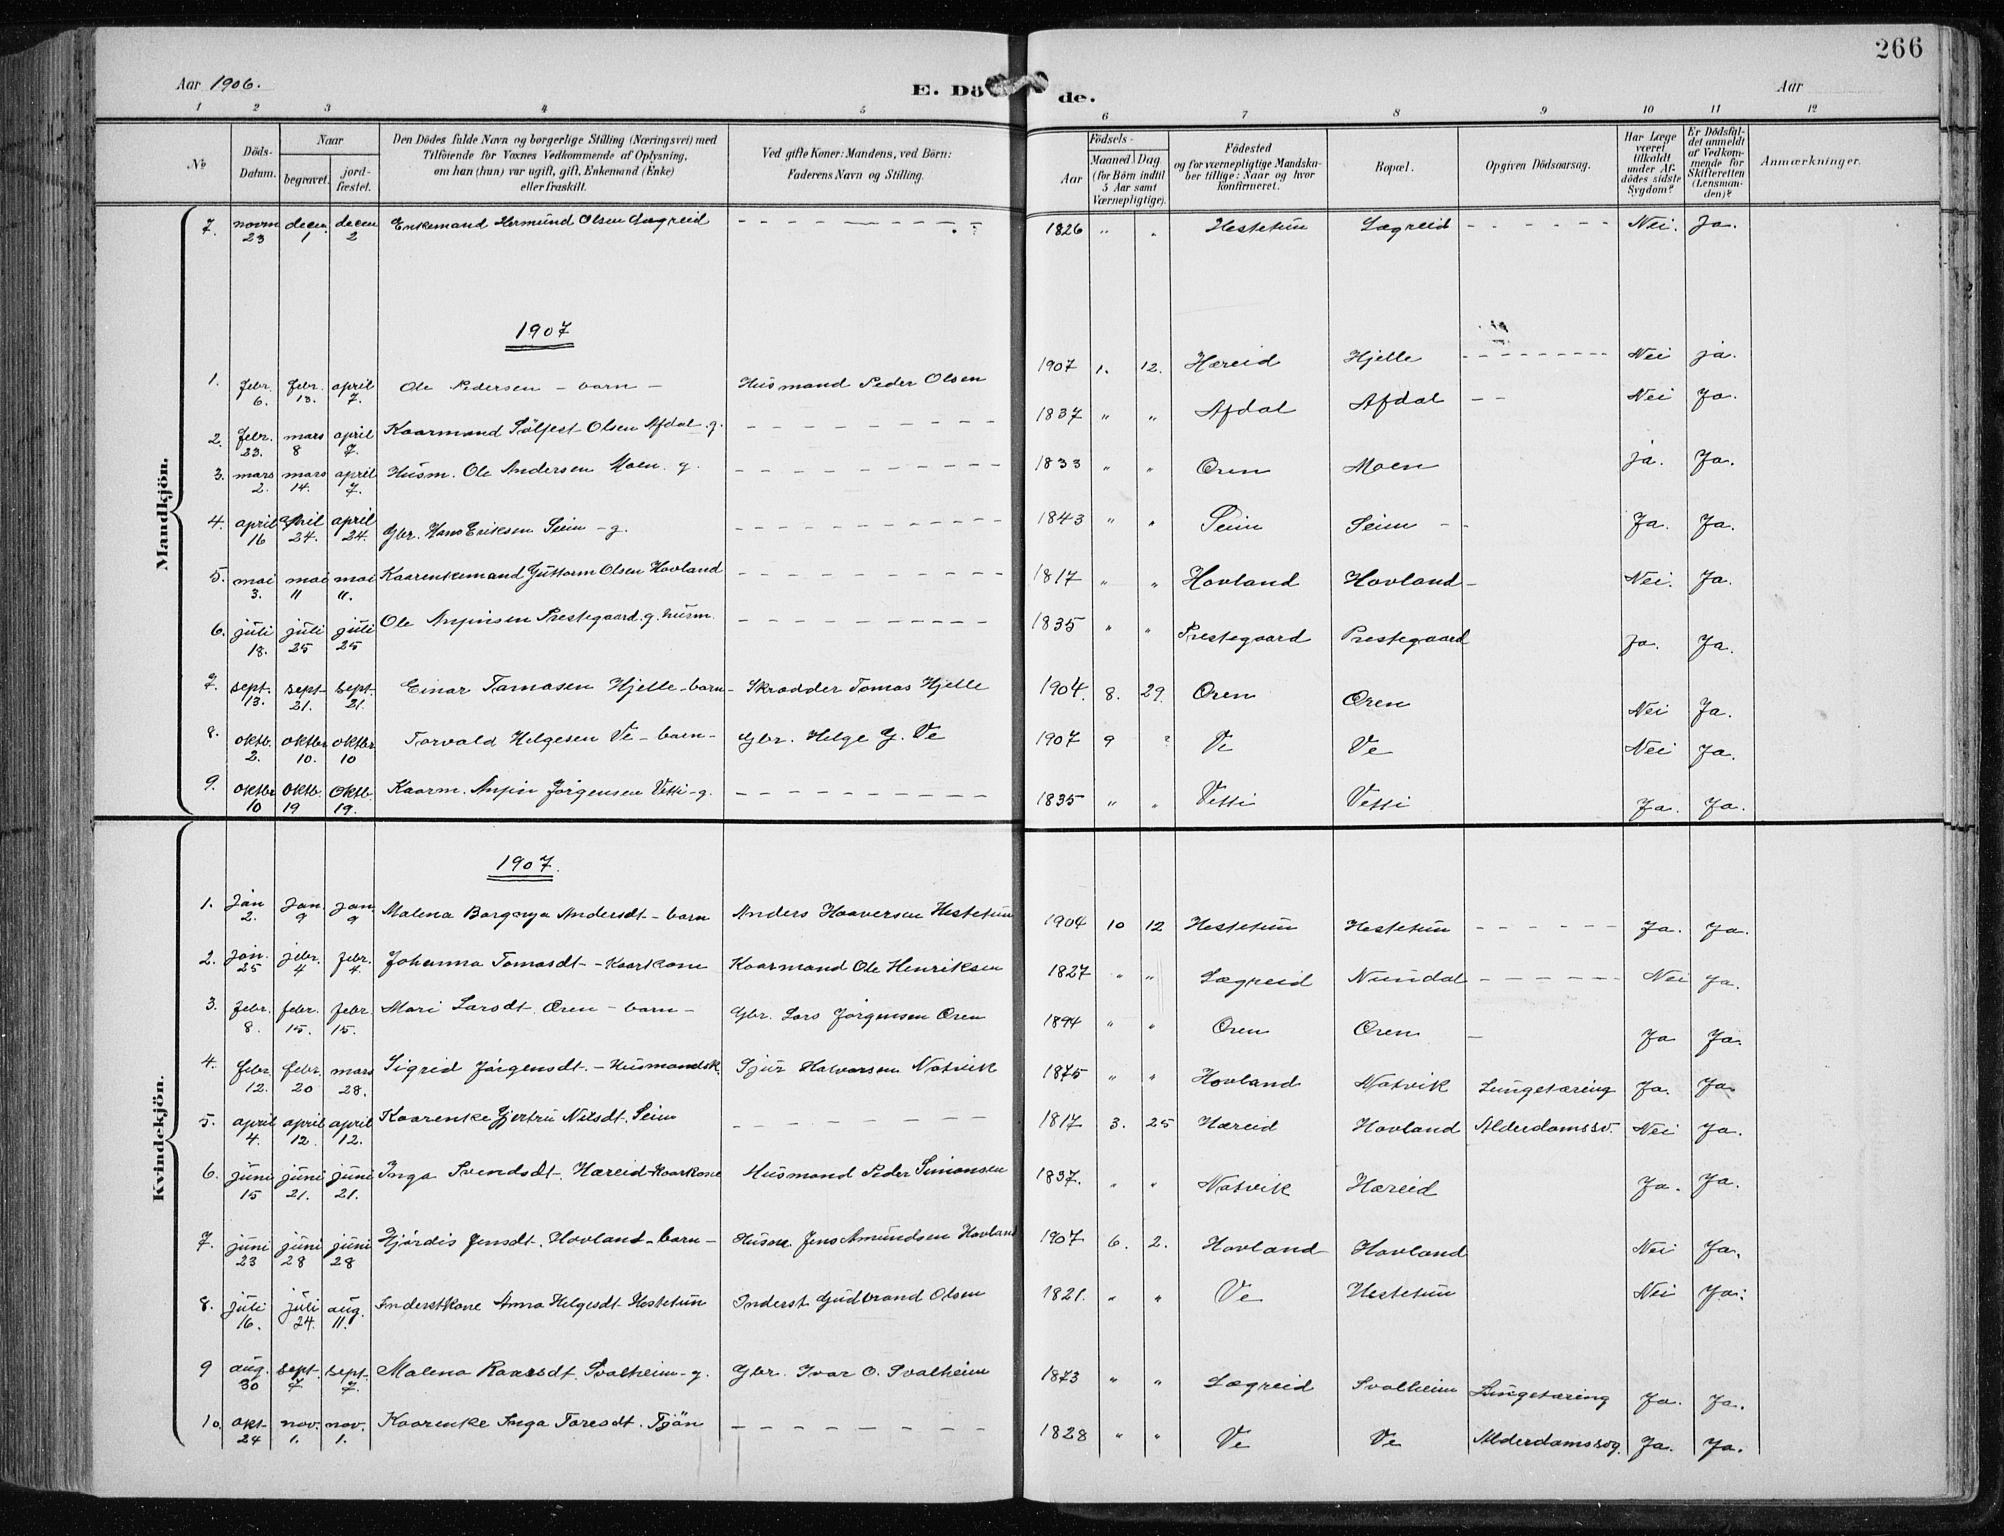 266
Aar 1906.
E. Dö
de.
Aar
1 2 3 4 5 6 7 8 9 10 11 12
No
Döds-Datum.
Naar
begravet.
jord-fæstet.
Den Dödes fulde Navn og borgerlige Stilling (Næringsvei) med
Tilföiende for Voxnes Vedkommende af Oplysning,
om han (hun) var ugift, gift, Enkemand (Enke)
eller fraskilt.
Ved gifte Koner: Mandens, ved Börn:
Faderens Navn og Stilling.
Födsels-
Aar
Maaned Dag
(for Börn indtil
5 Aar samt
Værnepligtige).
Födested
og for værnepligtige Mandska-
ber tillige: Naar og hvor
konfirmeret.
Bopæl.
Opgiven Dödsaarsag.
Har Læge
været
tilkaldt
under Af-
dödes sidste
Sygdom?
Er Dödsfal-
det anmeldt
af Vedkom-
mende for
Skifteretten
(Lensman-
den)?
Anmærkninger.
Mandkjön.
7. novm 23 decen 1 decen 2 Enkemand Hermund Olsen Lægreid - - - - - - - 1826 " " Hestetun Lægreid - - - - - Nei. Ja.
1907
1. febr. 6. febr. 13. april 7. Ole Pedersen - barn - Husmand Peder Olsen 1907 1. 12. Hæreid Hjelle - - - - - - - - Nei ja.
2. febr. 23. mars 8 april 7. Kaarmand Sölfest Olsen Afdal - g. - - - - - - - - 1837 " " Afdal Afdal - - Nei Ja.
3. mars 2. mars 14. april 7. Husm. Ole Andersen Moen. g. - - - - - - - - 1833 " " Øren Moen ja. Ja.
4. april 16 april 24. april 24. Gbr. Hans Eriksen Seim - g. - - - - - - - - 1843 " " Seim Seim - - Ja. Ja.
5. mai 3. mai 11 mai 11. Kaarenkemand Guttorm Olsen Hovland - - - - - - - - 1817 " " Hovland Hovland - Nei. Ja.
6. juli 18. juli 25 juli 25 Ole Anfinsen Prestegaard. g. husm. - - - - - - - - 1835 " " Prestegaard Prestegaard Ja. Ja.
7. sept. 13. sept 21. sept. 21. Einar Tomasen Hjelle - barn - Skrædder Tomas Hjelle 1904. 8. 29. Øren Øren Nei Ja.
8. oktb. 2. oktbr 10. oktbr 10 Torvald Helgesen Ve - barn - Gbr. Helge G. Ve 1907 9 ? Ve Ve Nei Ja.
9. oktbr 10 oktb. 19 oktb. 19. Kaarm. Anfin Jörgensen Vetti - g. - - - - - - - - 1835 " " Vetti Vetti Ja. Ja.
Kvindekjön.
1907.
1. Jan 2. Jan. 9 jan. 9 Malena Andersdt - barn Anders Haaversen Hestetun 1904 10 12 Hestetun Hestetun - - - - - - Ja. Ja.
2. jan. 25 febr. 4 febr. 4. Johanna Tomasdt - Kaarkone Kaarmand Ole Henriksen 1827 " " Lægreid Nundal - - - - - Nei Ja.
3. febr. 8. febr. 15. febr 15. Mari Larsdt. Øren - barn - Gbr. Lars Jörgensen Øren 1894 " " Øren Øren - Ja Ja.
4. febr. 12. febr. 20 mars 28. Sigrid Jörgensdt. - Husmandsk. Sjur Halvorsen Natvik 1875 " " Hovland Natvik Lungetæring Ja. Ja
5. april 4. april 12. april 12. Kaarenke Gjertru Nilsdt. Seim - - - - - - - 1817 3. 25 Hæreid Hovland Alderdomssv. Nei Ja.
6. juni 15 juni 21. juni 21. Inga Svendsdt. Hæreid - Kaarkone Husmand Peder Simonsen 1837. " " Natvik Hæreid Ja. Ja.
7. juni 23 juni 28 juni 28 Hjördis Jensdt. Hovland - barn - Husm. Jens Amundsen Hovland 1907 6. 2. Hovland Hovland Nei Ja.
8. juli 16. juli 24. aug. 11. Inderstkone Anna Helgesdt. Hestetun Inderst Gudbrand Olsen 1821. " " Ve Hestetun Nei Ja.
9 aug. 30 sept. 7 sept. 7. Malena Svalheim - g. Gbr. Ivar O. Svalheim 1873 " " Lægreid Svalheim Lungetæring Ja. Ja.
10. okt. 24 nov. 1. nov. 1. Kaarenke Inga Toresdt. Tjön - - - - - - - 1828 " " Ve Ve Alderdomssvg. Ja. Ja.